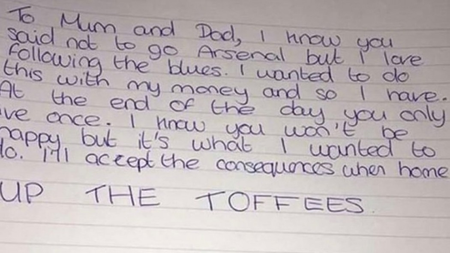 To Mum and Dad, I know you
said not to go Arsenal but I love
following the blues. I wanted to do
this with my money and so I have.
At the end of the day you only
ve once. I know you won't be
happy, but it's what I wanted to
do. I'll accept the consequences when home
UP THE TOFFEES.